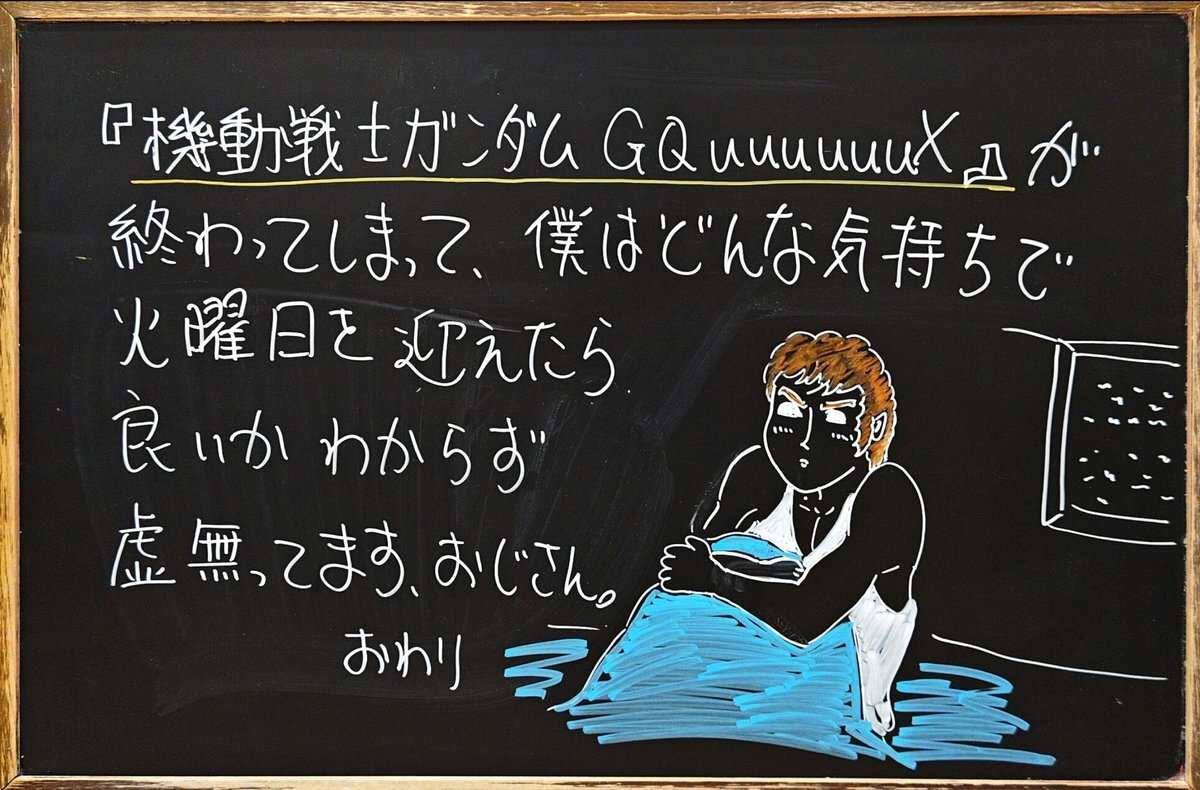 『機動戦士ガンダムGQuuuuuuX』が
終わってしまって、僕はどんな気持ちで
火曜日を迎えたら
良いかわからず
虚無ってます、おじさん。
おわり